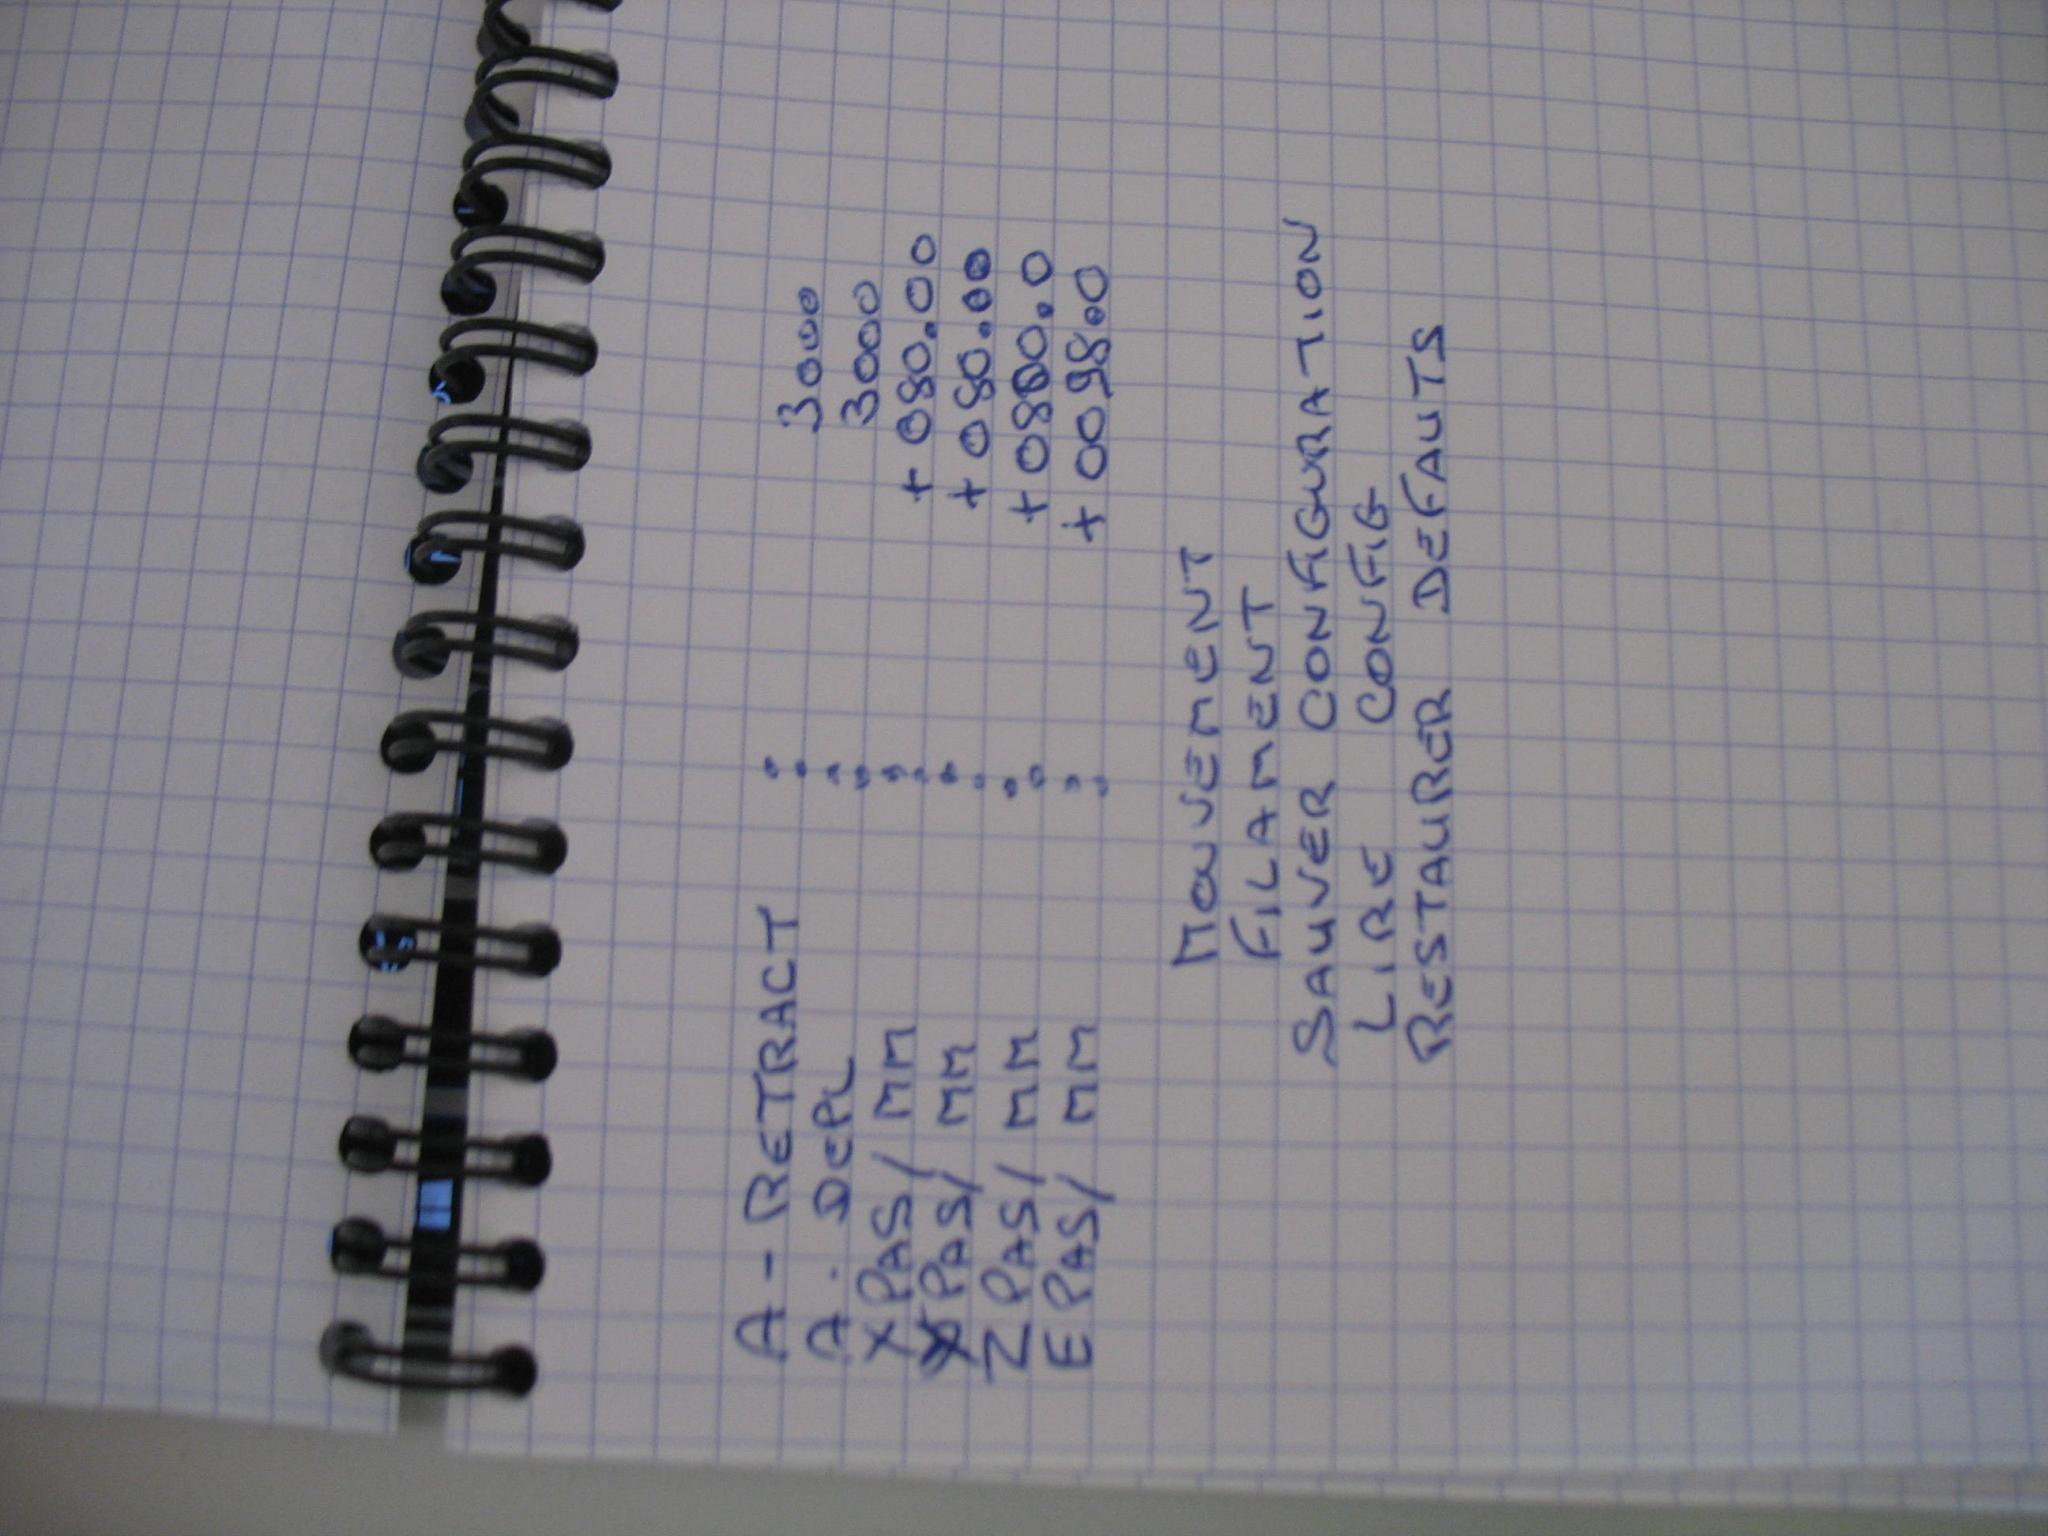 A-RETRACT : 3000
A. DEPL : 3000
X PAS/ MM : +080.00
Y PAS/ MM : +080.00
Z PAS/ MM : +0800.0
E PAS/ MM : +0098.0
MOUVEMENT
FILAMENT
SAUVER CONFIGURATION
LIRE CONFIG
RESTAURER DEFAUTS